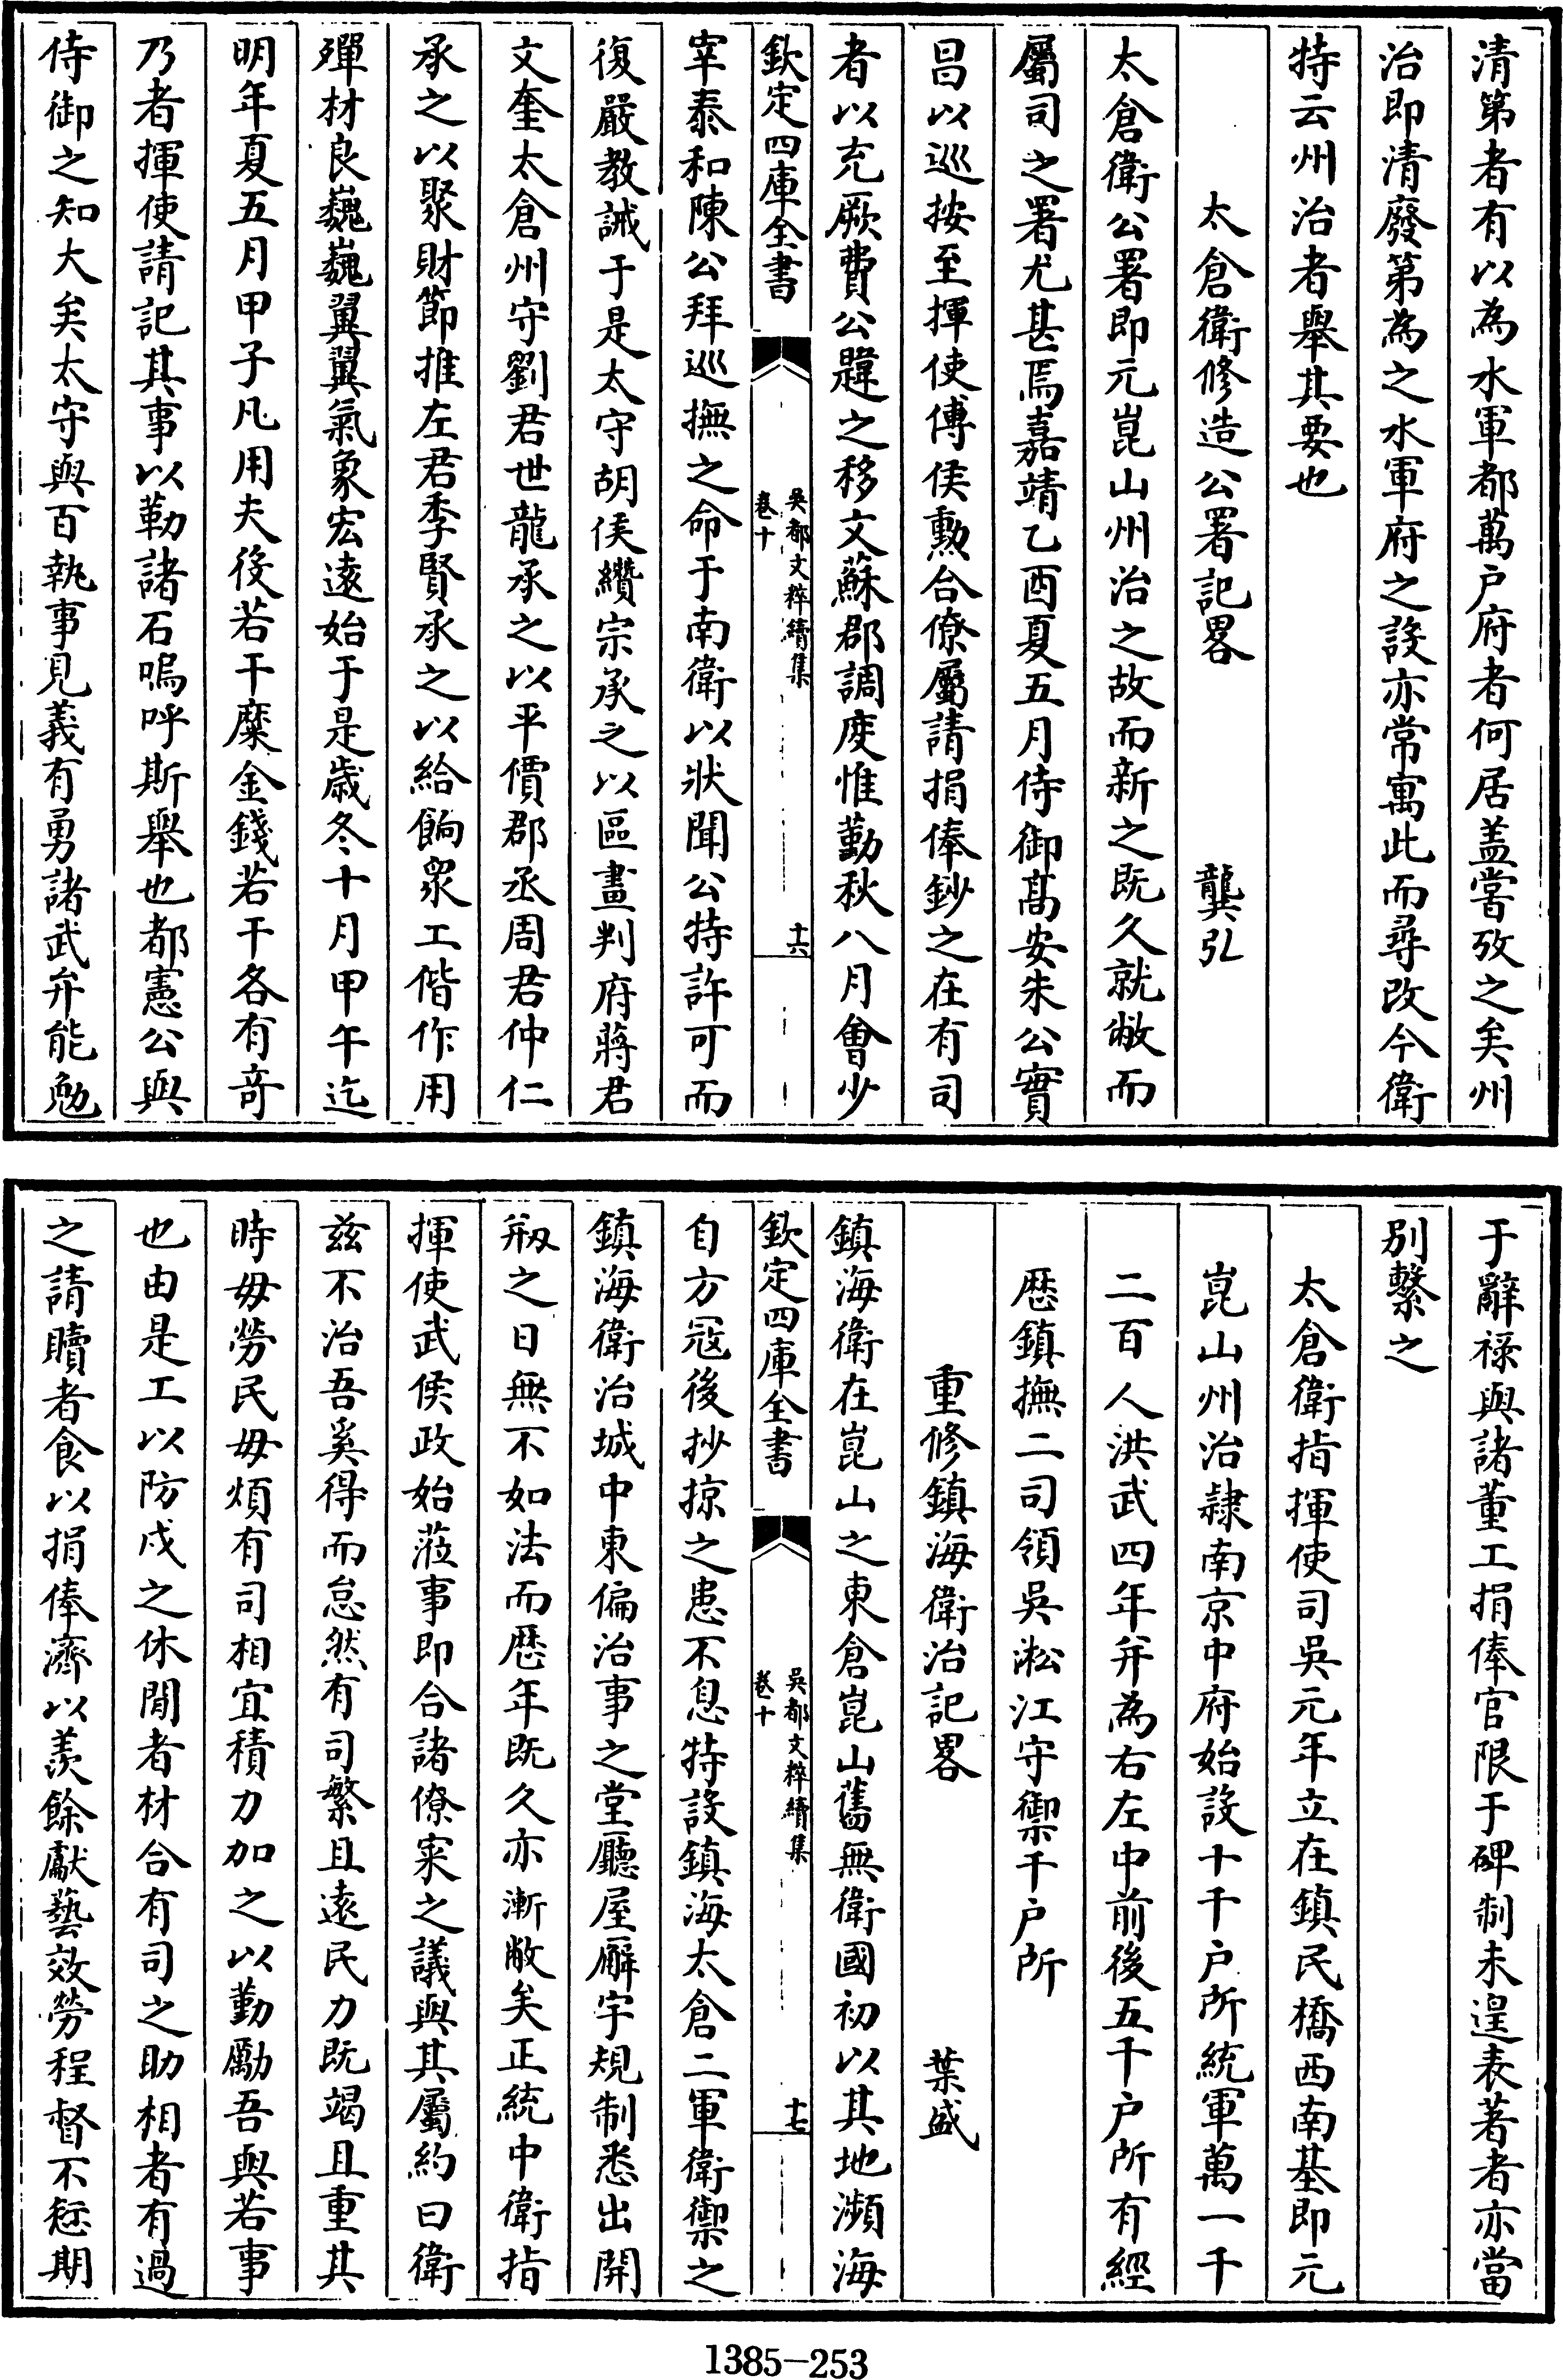 清第者有以為水軍都萬户府者何居盖嘗攷之矣州
治即清廢第為之水軍府之設亦常寓此而尋改今衛
特云州治者舉其要也
太倉衛修造公署記畧 龔弘
太倉衛公署即元崑山州治之故而新之既久就敝而
屬司之署尤甚焉嘉靖乙酉夏五月侍御髙安朱公實
昌以巡按至揮使傅侯勲合僚屬請捐俸鈔之在有司
者以充厥費公韙之移文蘇郡調度惟勤秋八月會少
欽定四庫全書 吳都文粹續集 卷十 十六
宰泰和陳公拜巡撫之命于南衛以狀聞公特許可而
復嚴教誡于是太守胡侯纘宗承之以區畫判府蔣君
文奎太倉州守劉君世龍承之以平價郡丞周君仲仁
承之以聚財節推左君季賢承之以給餉衆工偕作用
殫材良巍巍翼翼氣象宏遠始于是歲冬十月甲午迄
明年夏五月甲子凡用夫役若干糜金錢若干各有竒
乃者揮使請記其事以勒諸石嗚呼斯舉也都憲公與
侍御之知大矣太守與百執事見義有勇諸武弁能勉
于辭祿與諸董工捐俸官限于碑制未遑表著者亦當
别繫之
太倉衛指揮使司吳元年立在鎮民橋西南基即元
崑山州治隸南京中府始設十千户所統軍萬一千
二百人洪武四年并為右左中前後五千户所有經
歴鎮撫二司領吳淞江守禦千户所
重修鎮海衛治記畧 葉盛
鎮海衛在崑山之東倉崑山舊無衛國初以其地瀕海
欽定四庫全書 吳都文粹續集 卷十 十七
自方冦後抄掠之患不息特設鎮海太倉二軍衛禦之
鎮海衛治城中東偏治事之堂廳屋廨宇規制悉出開
剏之日無不如法而歴年既久亦漸敝矣正統中衛指
揮使武侯政始蒞事即合諸僚寀之議與其屬約曰衛
兹不治吾奚得而怠然有司繁且遠民力既竭且重其
時毋勞民毋煩有司相宜積力加之以勤勵吾與若事
也由是工以防戍之休閒者材合有司之助相者有過
之請贖者食以捐俸濟以羨餘獻藝效勞程督不愆期
1385-253